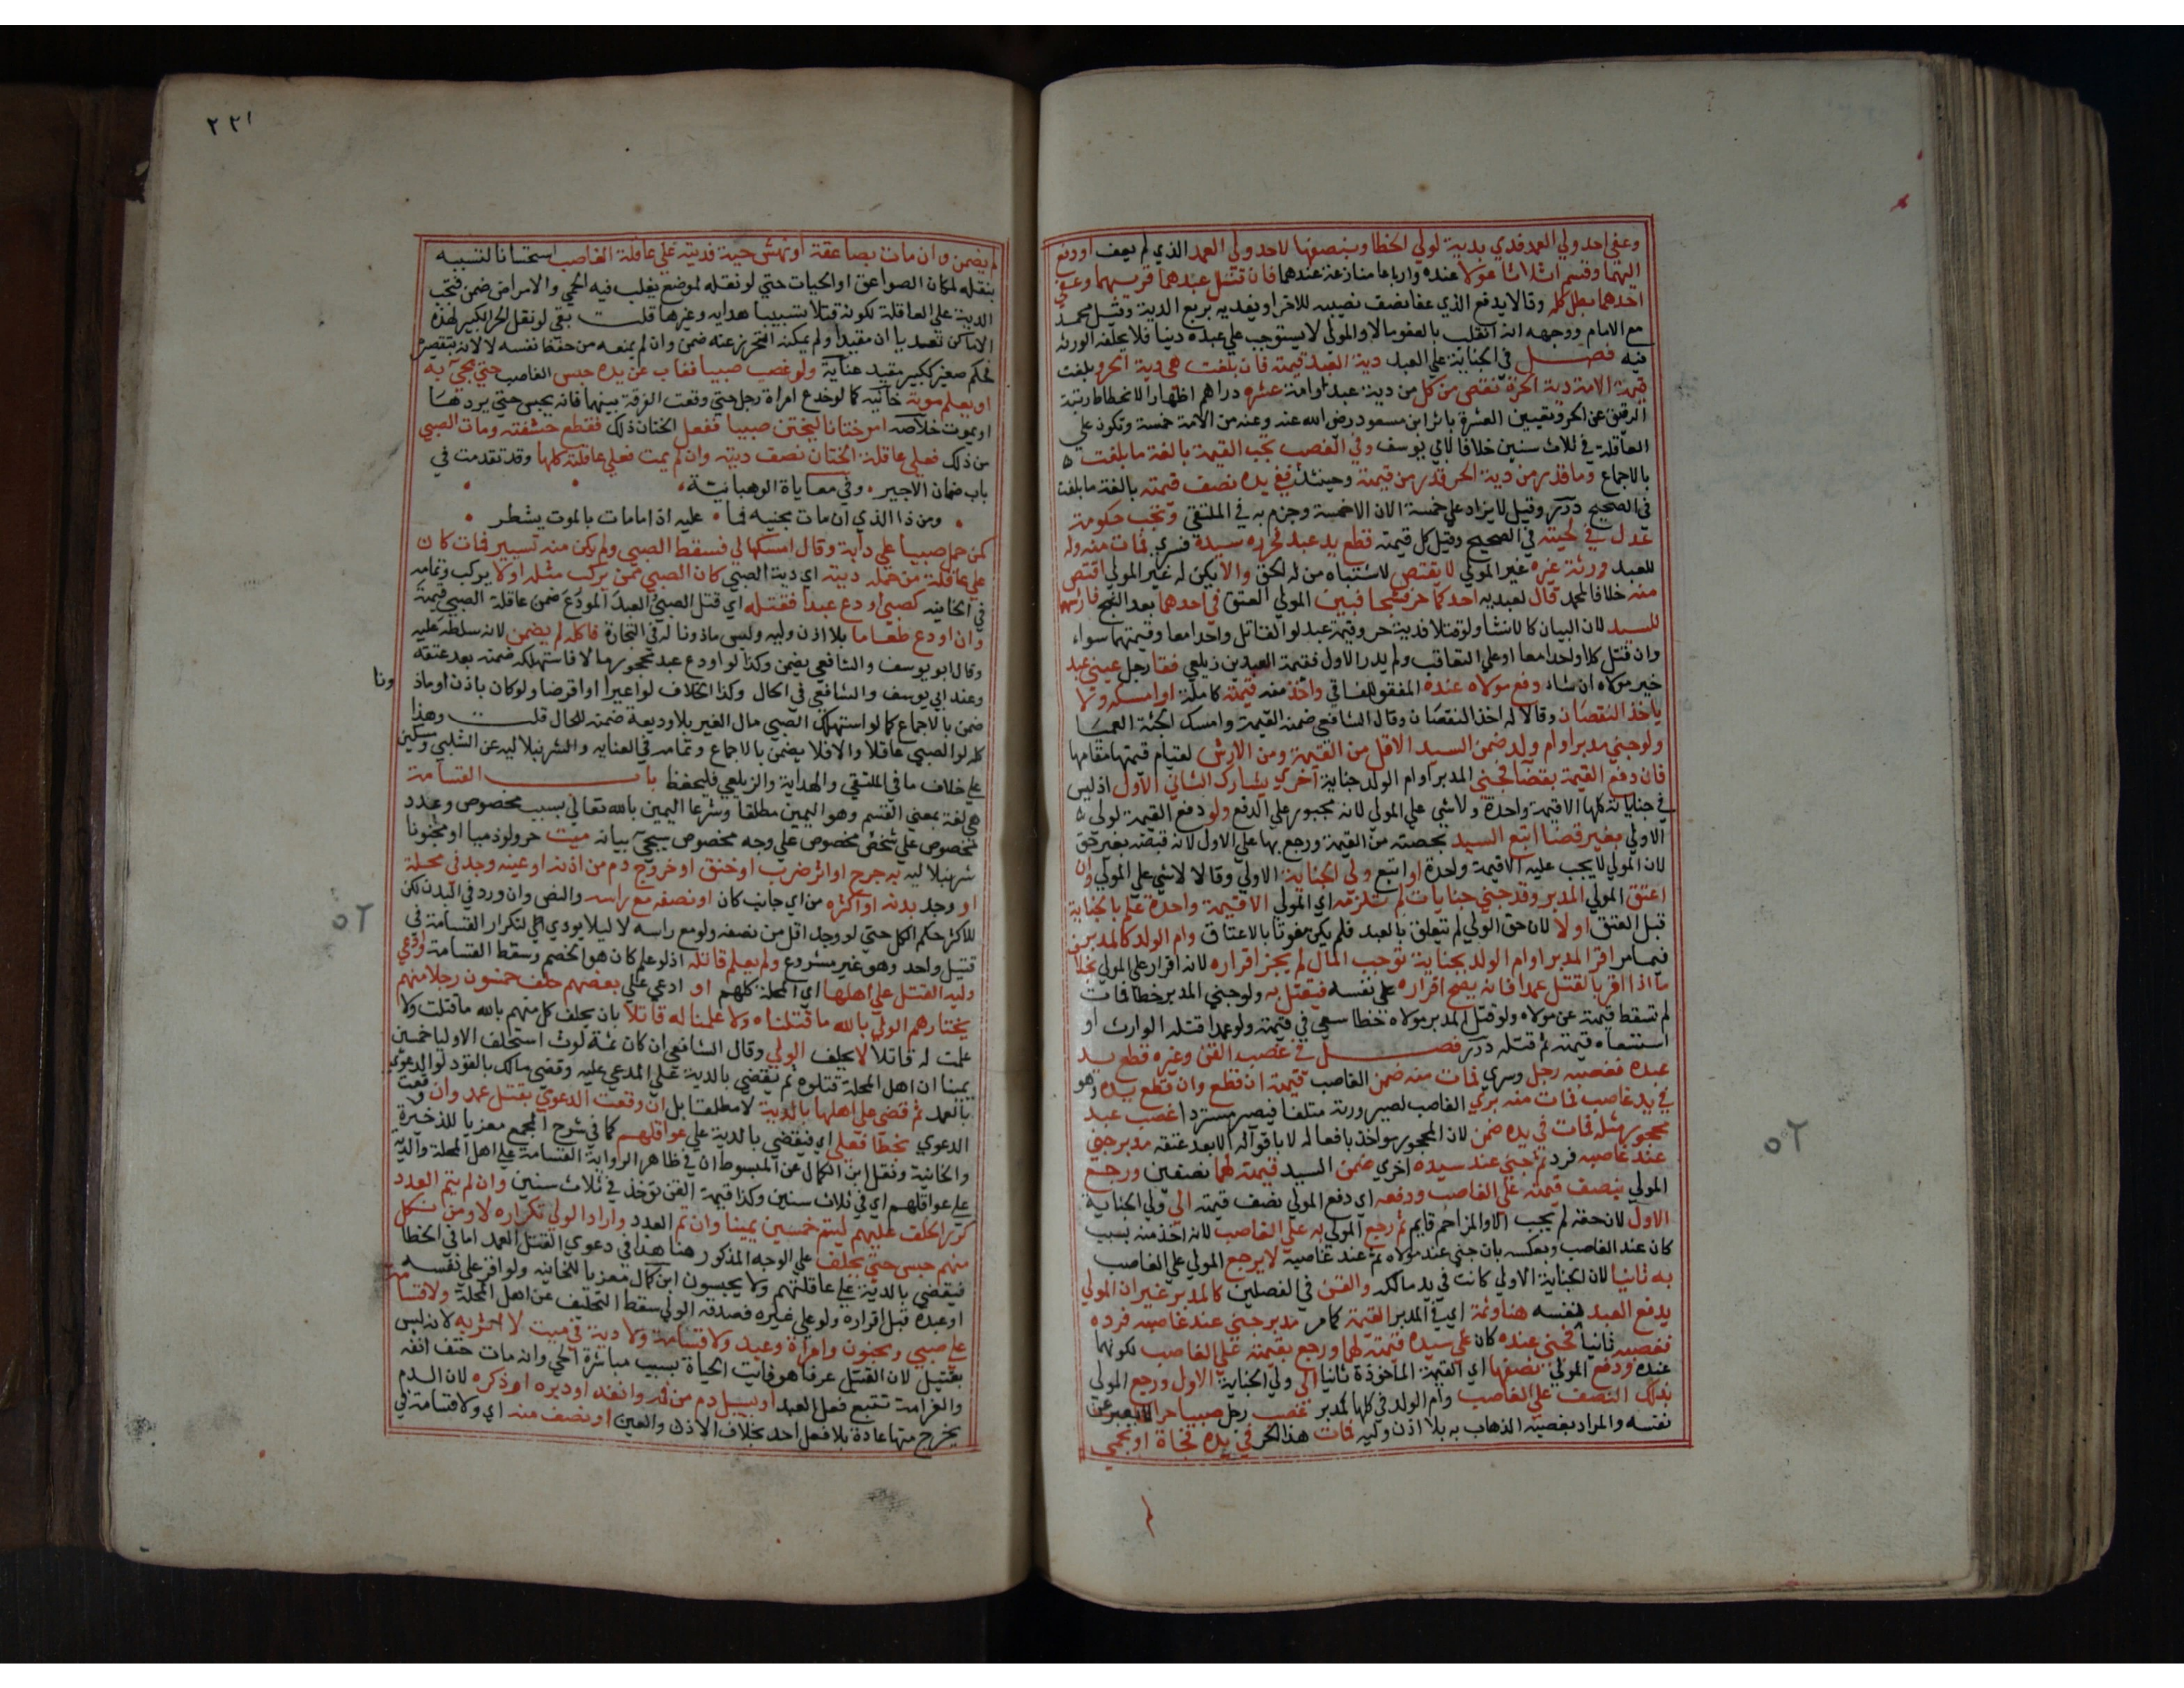 وعفي احد ولي العمد فدي بدية لولي الخطا وبنصفها لاحد ولي العمد الذي لم يعف او دفع
اليهما وقسم اثلاثا عولا عنده وارباعا منازعة عندهما فان قتل عبدهما قريبهما وعفي
احدهما بطل كله وقالا يدفع الذي عفا نصف نصيبه للاخر او يفديه بربع الدية وقيل محمد
مع الامام ووجهه انه انقلب بالعفو مالا والمولي لا يستوجب علي عبده دينا فلا يخلفه الورثة
فيه فصل في الجناية علي العبد دية العبد قيمته فان بلغت هي دية الحر وبلغت
قيمة الامة دية الحرة نقص من كل من دية عبد وامة عشرة دراهم اظهارا لانحطاط رتبة
الرقيق عن الحر وتعيين العشرة باثر ابن مسعود رضي الله عنه وعنه من الامة خمسة وتكون علي
العاقلة في ثلاث سنين خلافا لابي يوسف وفي الغصب تجب القيمة بالغة ما بلغت ه
بالاجماع وما قدر من دية الحر قدر من قيمته وحينئذ ففي يده نصف قيمته بالغة ما بلغت
في الصحيح درر وقيل لا يزاد علي خمسة الاف الا خمسة وجزم به في الملتقي وتجب حكومة
عدل في لحيته في الصحيح وقيل كل قيمته قطع يد عبد فحرره سيده فسري فمات منه وله
للعبد ورثة غيره غير المولي لا يقتص لاشتباه من له الحق والا يكن له غير المولي اقتص
منه خلافا لمحمد قال لعبديه احدكما حر فشجا فبين المولي العتق في احدهما بعد الشج فارشهما
للسيد لان البيان كالانشا ولو قتلا فدية حر وقيمة عبد لو القاتل واحدا معا وقيمتهما سواء
وان قتل كلا واحد معا او علي التعاقب ولم يدر الاول فقيمة العبدين زيلعي فقا رجل عيني عبد
خير مولاه ان شاء دفع مولاه عبده المفقو للفاقي واخذ منه قيمته كاملة او امسكه ولا
ياخذ النقصان وقالا له اخذ النقصان وقال الشافعي ضمنه القيمة وامسك الجثة العميا
ولو جني مدبر او ام ولد ضمن السيد الاقل من القيمة ومن الارش لقيام قيمتها مقامها
فان دفع القيمة بقضا فجني المدبر او ام الولد جناية اخري يشارك الثاني الاول اذ ليس
في جناياته كلها الا قيمة واحدة ولا شي علي المولي لانه مجبور علي الدفع ولو دفع القيمة لولي ه
الاولي بغير قضا اتبع السيد بحصته من القيمة ورجع بها علي الاول لانه قبضه بغير حق
لان المولي لا يجب عليه الا قيمة واحدة او اتبع ولي الجناية الاولي وقالا لا شي علي المولي وان
اعتق المولي المدبر وقد جني جنايات لم تلزمه اي المولي الا قيمة واحدة علم بالجناية
قبل العتق او لا لان حق الولي لم يتعلق بالعبد فلم يكن مفوتا بالاعتاق وام الولد كالمدبر
فيما مر اقر المدبر او ام الولد بجناية توجب المال لم يجز اقراره لانه اقرار علي المولي بخلاف
ما اذا اقر بالقتل عمدا فانه يصح اقراره علي نفسه فيقتل به ولو جني المدبر خطا فمات
لم تسقط قيمته عن مولاه ولو قتل المدبر مولاه خطا سعي في قيمته ولو عمدا قتله الوارث او
استسعاه قيمته ثم قتله درر فصل في غصب القن وغيره قطع يد
عبده فغصبه رجل وسري فمات منه ضمن الغاصب قيمته اقطع وان قطع يده وهو
في يد غاصب فمات منه بري الغاصب لصيرورته متلفا فيصير مستردا غصب عبد
محجور مثله فمات في يده ضمن لان المحجور مواخذ بافعاله لا باقواله الا بعد عتقه مدبر جني
عند غاصبه فرد ثم جني عند سيده اخري ضمن السيد قيمته لهما نصفين ورجع
المولي بنصف قيمته علي الغاصب ودفعه اي دفع المولي نصف قيمته الي ولي الجناية
الاول لان حقه لم يجب الا والمزاحم قايم ثم رجع المولي به علي الغاصب لانه اخذ منه بسبب
كان عند الغاصب وبعكسه بان جني عند مولاه ثم عند غاصبه لا يرجع المولي علي الغاصب
به ثانيا لان الجناية الاولي كانت في يد مالكه والقن في الفصلين كالمدبر غير ان المولي
يدفع العبد نفسه هنا وثمة اي في المدبر القيمة كما مر مدبر جني عند غاصبه فرده
فغصبه ثانيا فجني عنده كان علي سيده قيمته لهما ورجع بقيمته علي الغاصب لكونهما
عنده ودفع المولي نصفها اي القيمة الماخوذة ثانيا الي ولي الجناية الاول ورجع المولي
بذلك النصف علي الغاصب وام الولد في كلها كمدبر غصب رجل صبيا حرا لا يعبر عن
نفسه والمراد بغصبه الذهاب به بلا اذن وليه فمات هذا الحر في يده فجاة او بحمي
٥٢
٢٢١
لم يضمن وان مات بصاعقة او نهش حية فديته علي عاقلة الغاصب استحسانا لتسببه
بنقله لمكان الصواعق او الحيات حتي لو نقله لموضع يغلب فيه الحمي والامراض ضمن فتجب
الدية علي العاقلة لكونه قتلا تسبيبا هدايه وغيرها قلت بقي لو نقل الحر الكبير لهذه
الاماكن تعديا ان مقيدا ولم يمكنه التحرز عنه ضمن وان لم يمنعه من حفظ نفسه لا لانه بتقصيره
فحكم صغير ككبير مقيد عناية ولو غصب صبيا فغاب عن يده حبس الغاصب حتي يجيء به
او يعلم موته خانيه كما لو خدع امراة رجل حتي وقعت الفرقة بينهما فانه يحبس حتي يردها
او يموت خلاصه امر ختانا ليختن صبيا ففعل الختان ذلك فقطع حشفته ومات الصبي
من ذلك فعلي عاقلة الختان نصف ديته وان لم يمت فعلي عاقلته كلها وقد تقدمت في
باب ضمان الاجير وفي معاياة الوهبانية
ومن ذا الذي ان مات مجنيه فما عليه اذا مامات بالموت يشطر
كمن حمل صبيا علي دابة وقال امسكها لي فسقط الصبي ولم يكن منه تسيير فمات كان
علي عاقلة من حمله ديته اي دية الصبي كان الصبي ممن يركب مثله او لا يركب وتمامه
في الخانيه كصبي اودع عبدا فقتله اي قتل الصبي العبد المودع ضمن عاقلة الصبي قيمته
وان اودع طعاما بلا اذن وليه وليس ماذونا له في التجارة فاكله لم يضمن لانه سلطه عليه
وقال ابو يوسف والشافعي يضمن وكذا لو اودع عبد محجور مالا فاستهلكه ضمنه بعد عتقه
وعند ابي يوسف والشافعي في الحال وكذا الخلاف لو اعيرا او اقرضا ولو كان باذن او ماذ
ونا
ضمن بالاجماع كما لو استهلك الصبي مال الغير بلا وديعة ضمنه للحال قلت وهذا
كله لو الصبي عاقلا والا فلا يضمن بالاجماع وتمامه في العنايه والشرنبلاليه عن الشلبي ومسكين
علي خلاف ما في الملتقي والهداية والزيلعي فليحفظ باب القسامة
هي لغة بمعني القسم وهو اليمين مطلقا وشرعا اليمين بالله تعالي بسبب مخصوص وعدد
مخصوص علي شخص مخصوص علي وجه مخصوص سيجيء بيانه ميت حر ولو ذميا او مجنونا
شرنبلاليه به جرح او اثر ضرب او خنق او خروج دم من اذنه او عينه وجد في محلة
او وجد بدنه او اكثره من اي جانب كان او نصفه مع راسه والنص وان ورد في البدن لكن
للاكثر حكم الكل حتي لو وجد اقل من نصفه ولو مع راسه لا ليلا يودي الي لتكرار القسامة في
قتيل واحد وهو غير مشروع ولم يعلم قاتله اذ لو علم كان هو الخصم وسقط القسامة وادعي
وليه القتل علي اهلها اي المحلة كلهم او ادعي علي بعضهم حلف خمسون رجلا منهم
يختارهم الولي بالله ما قتلناه ولا علمنا له قاتلا بان يحلف كل منهم بالله ما قتلت ولا
علمت له قاتلا لا يحلف الولي وقال الشافعي ان كان ثمة لوث استحلف الاوليا خمسين
يمينا ان اهل المحلة قتلوه ثم يقضي بالدية علي المدعي عليه وقضي مالك بالقود لو الدعوي
بالعمد ثم قضي علي اهلها بالدية لا مطلقا بل ان وقعت الدعوي بقتل عمد وان وقعت
الدعوي بخطا فعلي اي فيقضي بالدية علي عواقلهم كما في شرح المجمع معزيا للذخيرة
والخانية ونقل ابن الكمال عن المبسوط ان في ظاهر الرواية القسامة علي اهل المحلة والدية
علي عواقلهم اي في ثلاث سنين وكذا قيمة القن توخذ في ثلاث سنين وان لم يتم العدد
كرر الحلف عليهم ليتم خمسين يمينا وان تم العدد واراد الولي تكراره لا ومن نكل
منهم حبس حتي يحلف علي الوجه المذكور هنا هذا في دعوي القتل العمد اما في الخطا
فيقضي بالدية علي عاقلتهم ولا يحبسون ابن كمال معزيا للخانيه ولو اقر علي نفسه
او عبده قبل اقراره ولو علي غيره فصدقه الولي سقط التحليف عن اهل المحلة ولا قسامة
علي صبي ومجنون وامراة وعبد ولا قسامة ولا دية في ميت لا اثر به لانه ليس
بقتيل لان القتيل عرفا هو فايت الحياة بسبب مباشرة الحي وانه مات حتف انفه
والغرامة تتبع فعل العبد او يسيل دم من فمه وانفه او دبره او ذكره لان الدم
يخرج منها عادة بلا فعل احد بخلاف الاذن والعين او نصف منه اي ولا قسامة في
٥٢